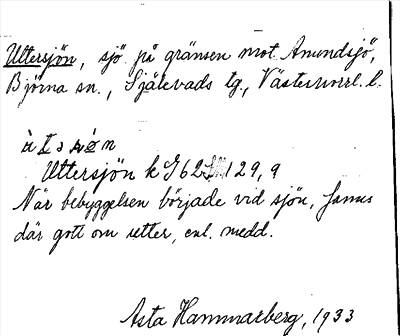 Uttersjön, sjö på gränsen mot Anundsjö,
Björna sn., Själevads tg., Västernorrl. l.
Uttersjön k J62 129,9
När bebyggelsen började vid sjön, fanns
där gott om utter, enl. medd.
Asta Hammarberg, 1933